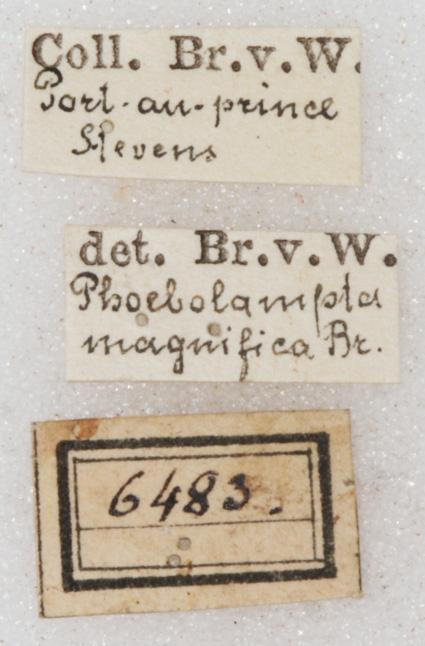 Coll. Br.v.W.
Port-au-prince
Stevens
det. Br.v.W.
Phoebolampta
magnifica Br.
6483.